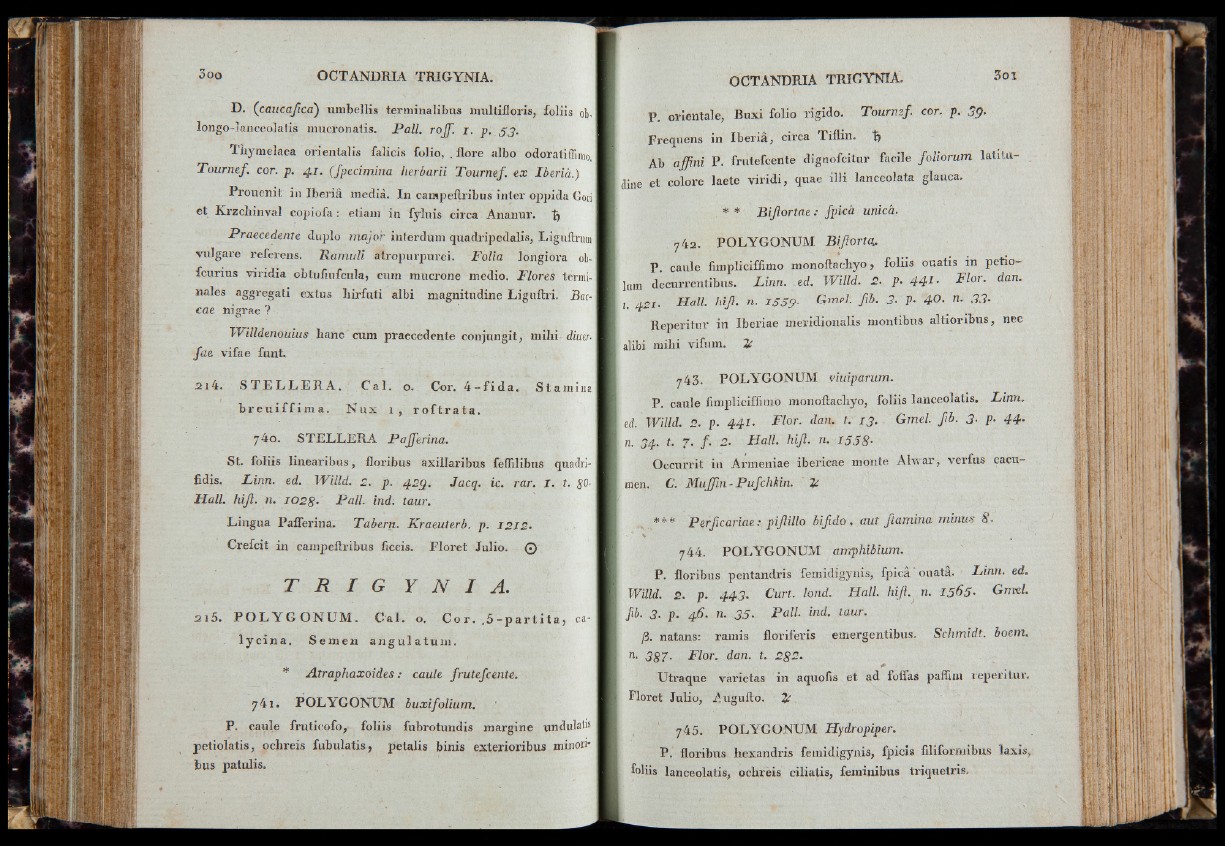 300 OCTANDRIA TRIGYNIA.
D. (caucaſica) umbellis terminalibus multifloris, foliis ob-
longo-lanceolatis mucronatis. Pall. roſſ. 1. p. 53.
Thymelaea orientalis ſalicis folio, flore albo odoratiſſimo,
Tournef. cor. p. 41. (ſpecimina herbarii Tournef. ex Iberiâ.)
Prouenit in Iberiâ mediâ. In campeſtribus inter oppida Gori
et Krzchinval copioſa: etiam in ſyluis circa Ananur. ♄
Praecedente duplo major interdum quadripedalis, Liguſtrum
vulgare referens. Ramuli atropurpurei. Folia longiora ob-
ſcurius viridia obtuſiuſcula, cum mucrone medio. Flores termi-
nales aggregati extus hirſuti albi magnitudine Liguſtri. Bac-
cae nigrae?
Willdenouius hanc cum praecedente conjungit, mihi diuer-
ſae viſae ſunt.
214. STELLERA. Cal. 0. Cor. 4-fida. Stamina
breuiſſima. Nux 1, roſtrata.
740. STELLERA Paſſerina.
St. foliis linearibus, floribus axillaribus ſeſſilibus quadri-
fidis. Linn. ed. Willd. 2. p. 429. Jacq. ic. rar. 1. t. 80.
Hall. hiſt. n. 1028. Pall. ind. taur.
Lingua Paſſerina. Tabern. Kraeuterb. p. 1212.
Creſcit in campeſtribus ſiccis. Floret Julio. ⊙
TRIGYNIA.
215. POLYGONUM. Cal. 0. Cor. 5-partita, ca-
lycina. Semen angulatum.
* Atraphaxoides: caule fruteſcente.
741. POLYGONUM buxifolium.
P. caule fruticoſo, foliis ſubrotundis margine undulatis
petiolatis, ochreis ſubulatis, petalis binis exterioribus minori-
bus patulis.
OCTANDRIA TRIGYNIA. 301
P. orientale, Buxi folio rigido. Tournef. cor. p. 39.
Frequens in Iberiâ, circa Tiflin. ♄
Ab affini P. fruteſcente dignoſcitur facile foliorum latitu-
dine et colore laete viridi, quae illi lanceolata glauca.
** Biſtortae: ſpicâ unicâ.
742. POLYGONUM Biſtorta.
P. caule ſimpliciſſimo monoſtachyo, foliis ouatis in petio-
lum decurrentibus. Linn. ed. Willd. 2. p. 441. Flor. dan.
t. 421. Hall. hiſt. n. 1559. Gmel. ſib. 3. p. 40. n. 33.
Reperitur in Iberiae meridionalis montibus altioribus, nec
alibi mihi viſum. ♃
743. POLYGONUM viuiparum.
P. caule ſimpliciſſimo monoſtachyo, foliis lanceolatis. Linn.
ed. Willd. 2. p. 441. Flor. dan. t. 13. Gmel. ſib. 3. p. 44.
n. 34. t. 7. f. 2. Hall. hiſt. n. 1558.
Occurrit in Armeniae ibericae monte Alwar, verſus cacu-
men. C. Muſſin-Puſchkin. ♃
*** Perſicariae: piſtillo bifido, aut ſtamina minus 8.
744. POLYGONUM amphibium.
P. floribus pentandris ſemidigynis, ſpicâ ouatâ. Linn. ed.
Willd. 2. p. 443. Curt. lond. Hall. hiſt. n. 1565. Gmel.
ſib. 3. p. 46. n. 35. Pall. ind. taur.
β. natans: ramis floriferis emergentibus. Schmidt. boem.
n. 387. Flor. dan. t. 282.
Utraque varietas in aquoſis et ad foſſas paſſim reperitur.
Floret Julio, Auguſto. ♃
745. POLYGONUM Hydropiper.
P. floribus hexandris ſemidigynis, ſpicis filiformibus laxis,
foliis lanceolatis, ochreis ciliatis, ſeminibus triquetris.